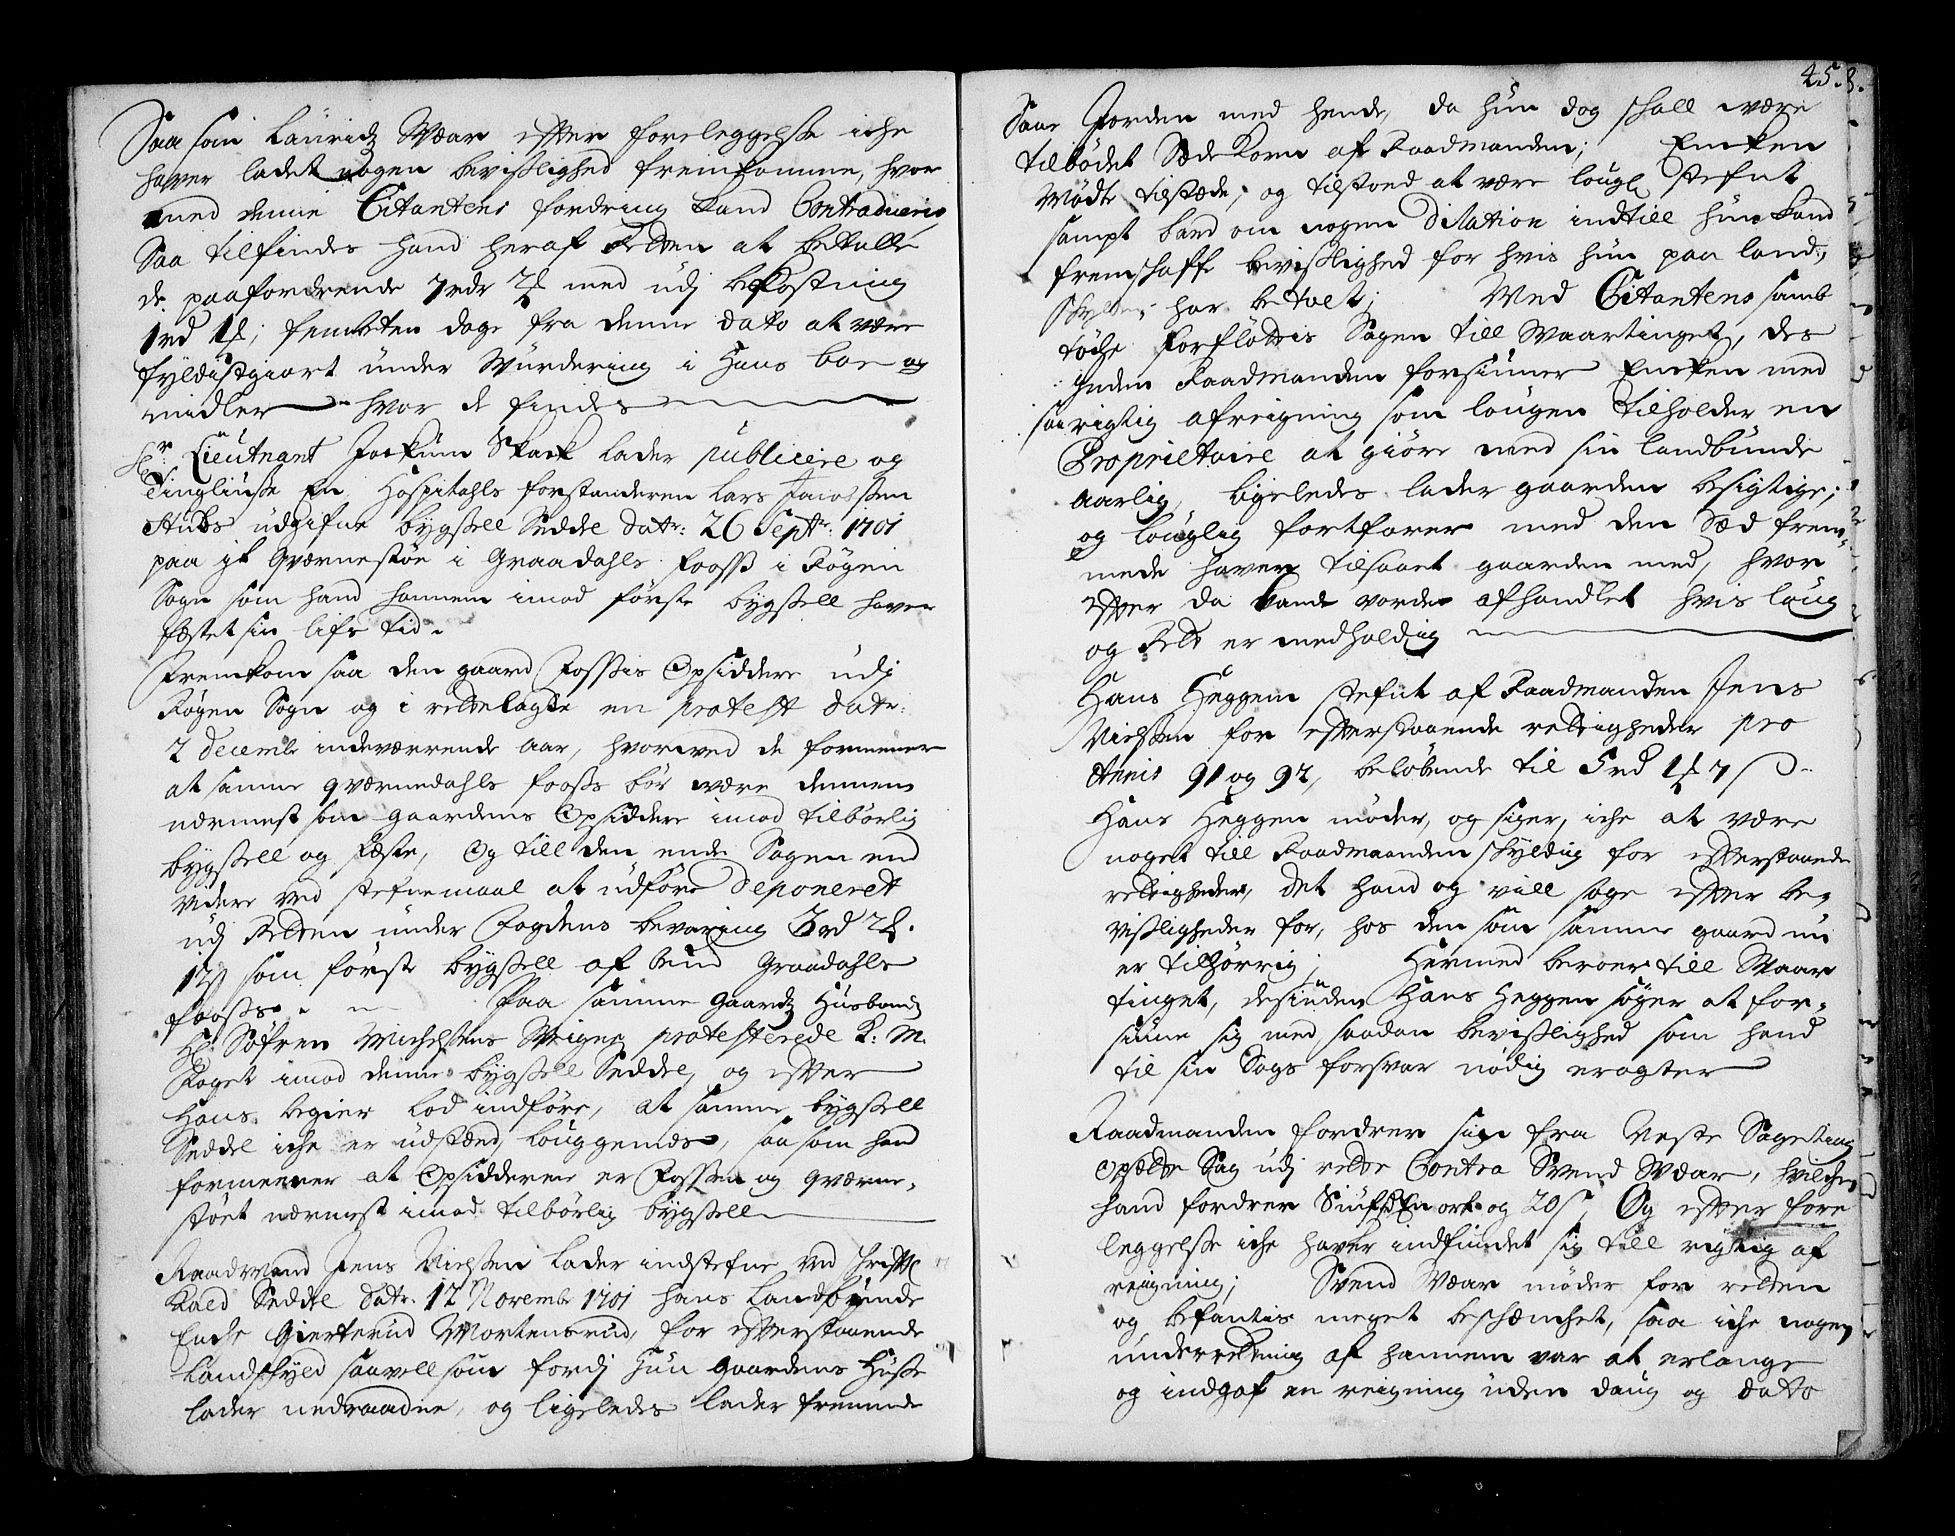 Saa som Lauridtz Wæar effter foreleggelse iche
haver ladet nogen bevisslighed fremkomme, hvor
med denne Citantens fordring kand Contraduceris
Saa tilfindes hand heraf Retten at betalle
de paafordrende 7 rdr 2 ort med udj bekostning
1 rd 1 ort; femten dage fra denne dato at være
fyldistgiort under Wurdering i Hans boe og
midler hvor de findes
Hr: Lieutnant Jockum Skack lader publicere og
Tingliusse En Hospitahls forstanderen Lars Jacobssen
Stubs udgifne bygssell Seddel datr: 26 Septr: 1701
paa it Qværnestöe i Graadahls foosss i Rögen
Sogn som hand hannem imod förste bygssell haver
fæstet sin lifs tid.
Fremkom saa den gaard Fossis Opsiddere udj
Rögen Sogn og i rettelagde en protest datr:
2 decembr indeværrende aar, hvorved de formener
at samme qværnedahls fooss bör være dennem
nermest som gaardens Opsiddere imod tilbörlig
bygssell og fæste, Og till den ende Sagen end
videre ved stefnemaal at udföre deponeret
udj Retten under Fogdens bevaring 3 rd 2 ort.
12 s som förste bygssell af bemt Graadahls
fooss. Paa samme Gaardtz Husbond
Hr: Söfren Michelssens Weigne protesterede K: M:
Foget imod denne bygssell Seddel, og effter
Hans begier lod indföre, at samme bygssell
Seddel iche er udstæd louggemes, saa som hand
formeener at Opsidderne er Fossen og qværne-
stöet nermest imod tilbörlig bygssell
Raadmand Jens Nielssen lader indstefne ved Skrifftl
Kald Seddel datr. 12 Novembr 1701 hans Landbunde
Enche Gierterud Mortensrud, for effterstaaende
Landskyld saavell som fordj hun Gaardens Husse
lader nedraadne, og ligeledes lader fremmde
458.
Saae Jorden med hende, da hun dog schall være
tilbödet Sæde Korn af Raadmanden; Encken
Mödte tilstæde, og tilstoed at være lougl stefnt
sampt bad om nogen dilation indtill hun kand
fremschaffe bevisslighed for hvis hun paa land-
schylden har betalt; Med Citantens samb
töche forflöttis Sagen till Waartinget, des
Inden Raadmanden forsiuner Encken med
saa rigtig afreigning som lougen tilholder en
Proprietaire at giöre med sin landbunde
aarlig, ligeledes lader gaarden besigtige;
og louglig fortfarer med den Sæd frem-
mede haver tilsaaet gaarden med, hvor
effter da kande vorde afhandlet hvis loug
og Rett er medholdig
Hans Heggem stefnt af Raadmanden Jens
Nielssen for effterstaaende rettigheder pro
Annis 91 og 92, belöbende til 5 rd 1 ort 7 s
Hans Heggen möder, og siger, iche at være
noget till Raadmanden schyldig for effterstaaende
rettigheder, det hand og vill söge effter be-
vissligheder for, hos den som samme gaard nu
er tilhörrig; Hermed beroer till Waar
tinget, desinden Hans Heggen söger at for-
siune sig med saadan bevisslighed som hand
til sin Sags forsvar nödig eragter
Raadmanden fordrer sig fra Neste Sageting
Opsatte Sag udj rette Contra Svend Wæar, hvilchen
hand fordrer ort og 20 s, Og effter fore
leggelse iche haver indfundet sig till rigtig af
reigning; Svend Wæar möder for retten
og befantis meget beschæncket, saa iche nogen
underretning af hannem var at erlange
og indgaf en reigning uden daug og dato